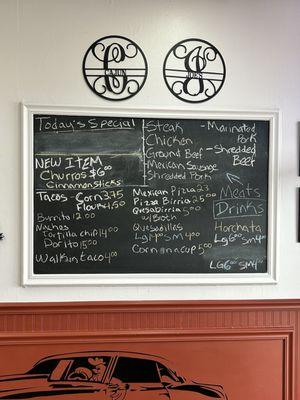 C
CAJUN
J
JOE'S
Today's Special
NEW ITEM
Churros $6.00
Cinnamon sticks
Steak
Chicken
Ground Beef
Mexican Sausage
Shredded Pork
- Marinated
Pork
- Shredded
Beef
Meats
Tacos - Corn 3.75
Flour 4.50
Burrito 12.00
Nachos
Tortilla chip 14.00
Dorito 15.00
Walkin taco 4.00
Mexican Pizza 23
Pizza Birria 25.00
Quesabirria 5.00
w/ Broth
Quesadillas
Lg 14.00 Sm 4.00
Corn in a cup 5.00
Drinks
Horchata
Lg 6.00 Sm 4.00
LG 6.00 SM 4.00